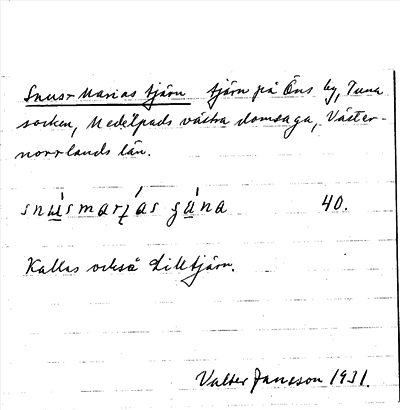 Snus-Marias tjärn tjärn på Öns by, Tuna
socken, Medelpads västra domsaga, Väster-
norrlands län.
snu̲̍smarı̯̍as gu̲̍na 40.
Kallas också Lilltjärn.
Valter Jansson 1931.